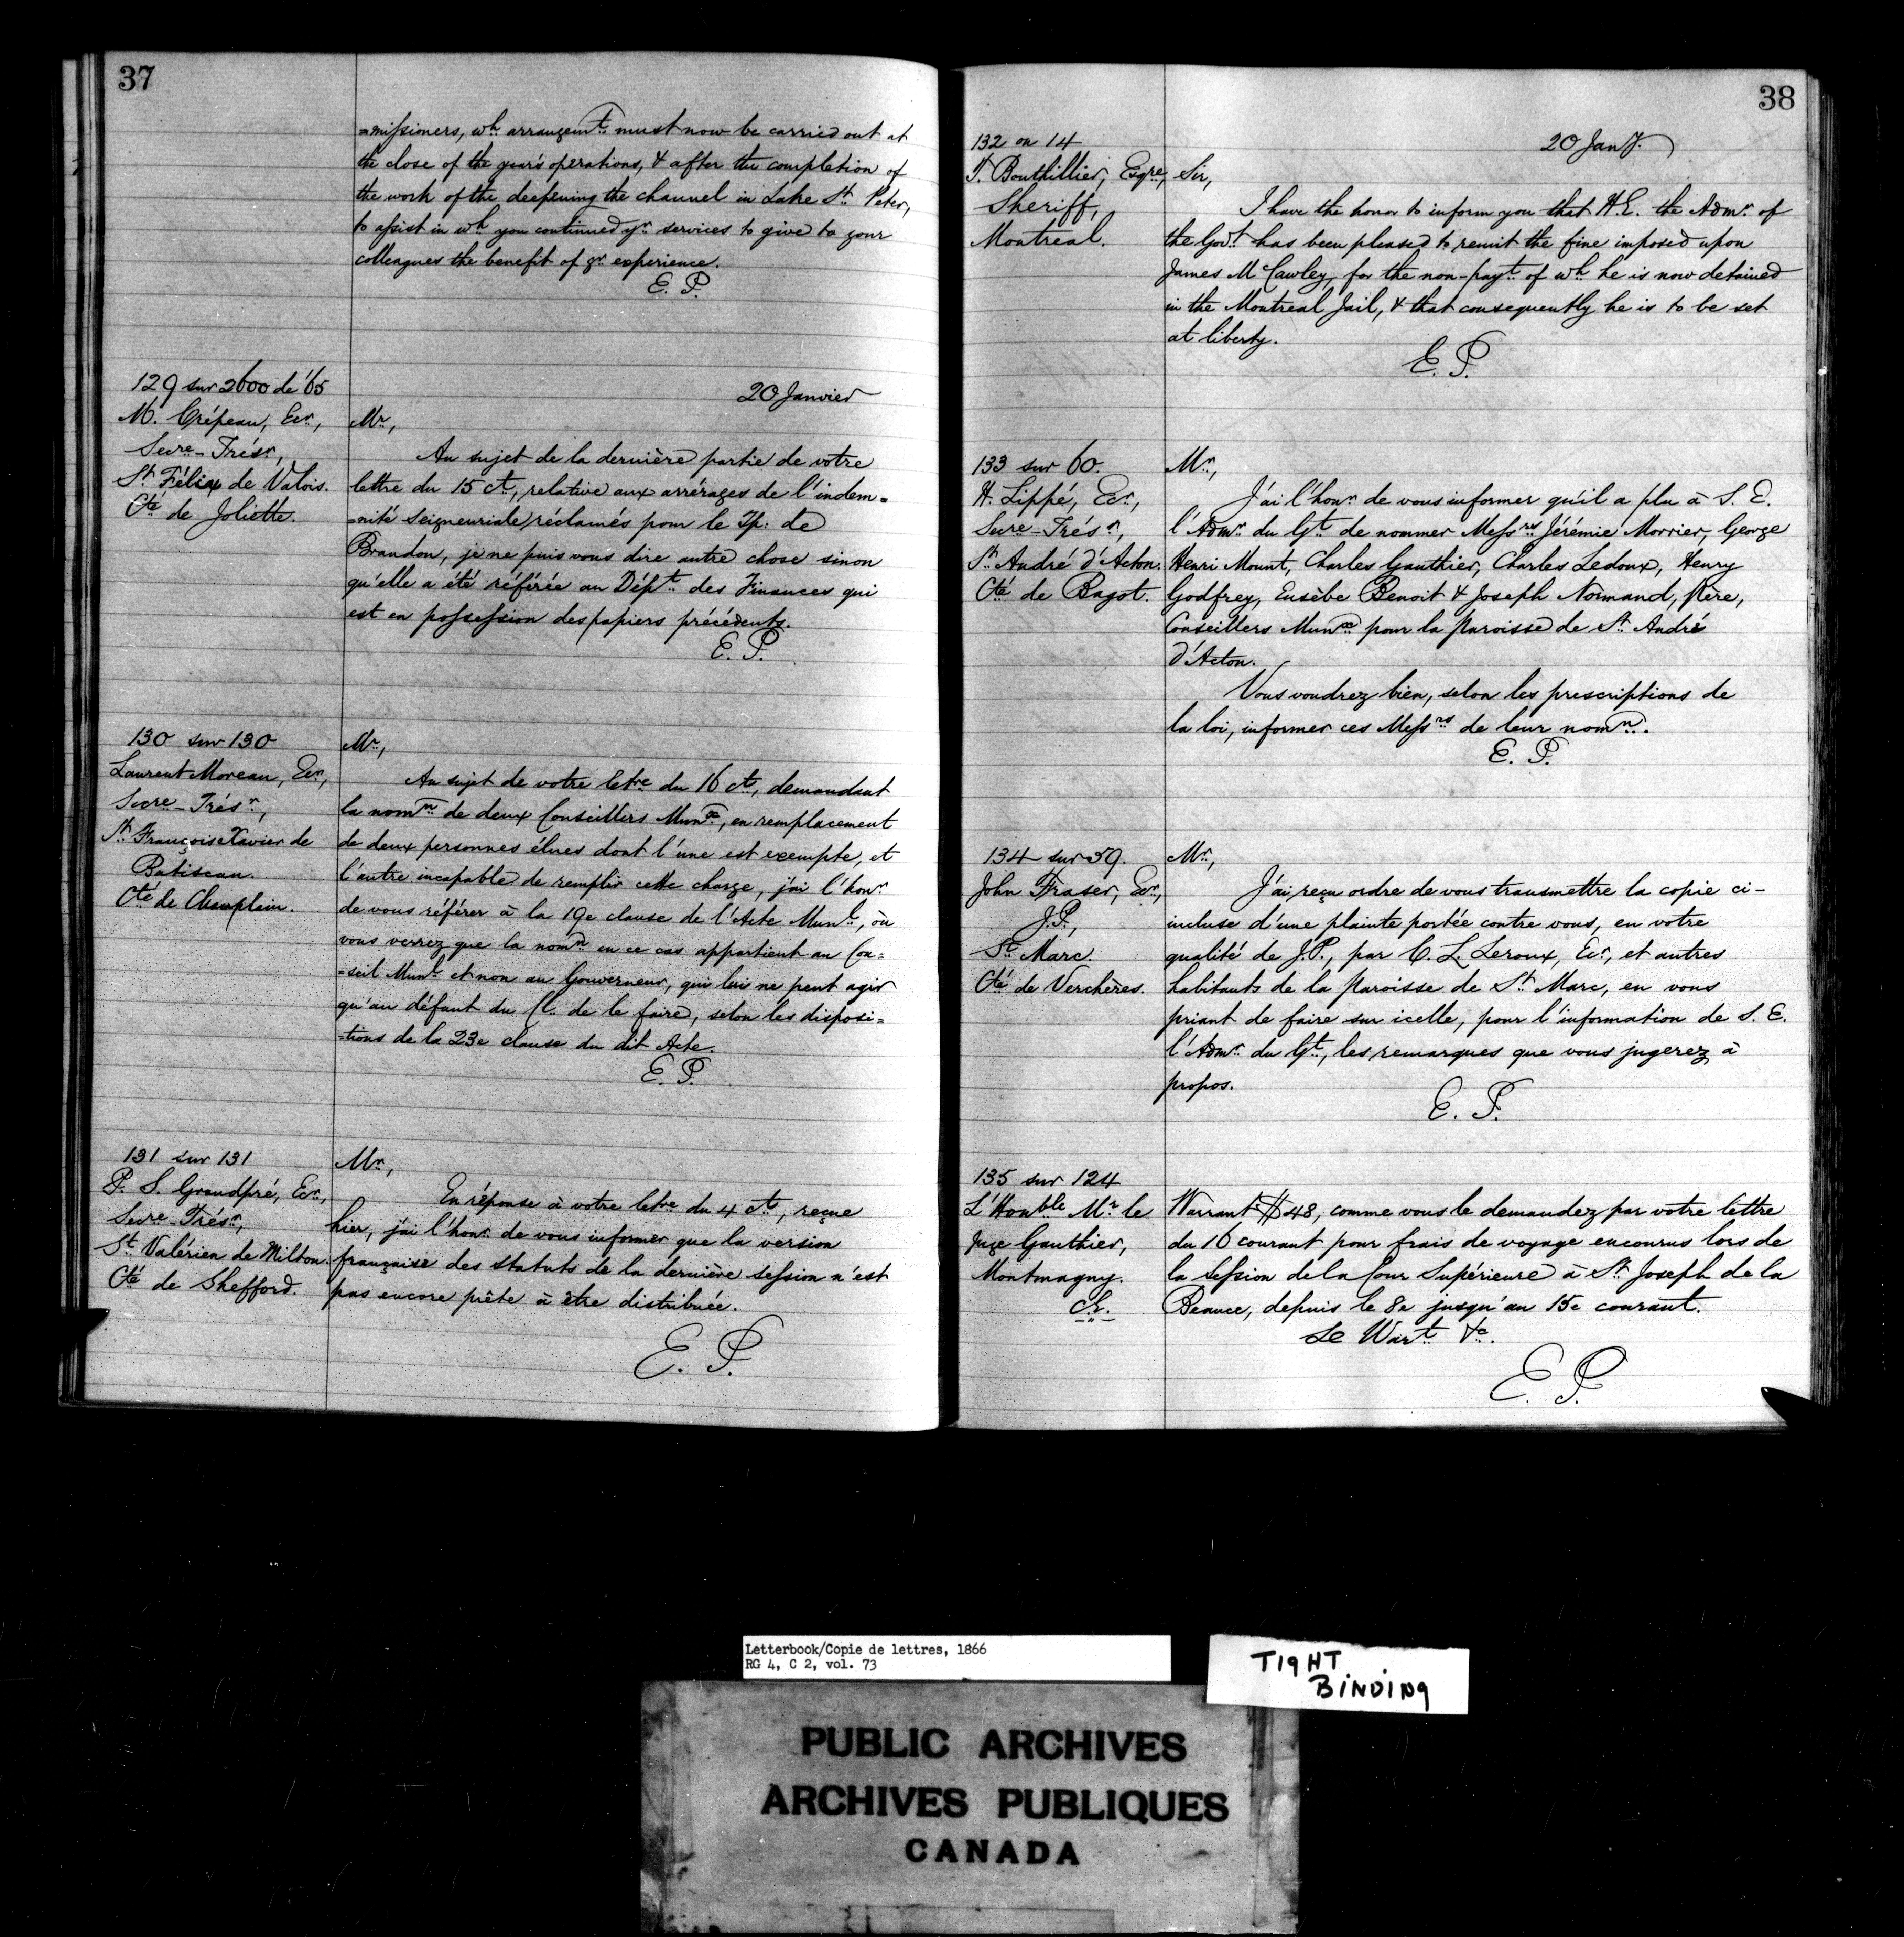 37
=missioners, wh. arrangemt. must now be carried out at
the close of the year's operations, & after the completion of
the work of the deepening the channel in Lake St. Peter,
to assist in wh. you continued yr. services to give to your
colleagues the benefit of yr. experience.
E. P.
129 sur 2600 de '65
M. Crépeau, Ecr.,
Secre-Trésr.,
St. Félix de Valois.
Cté de Joliette.
20 Janvier
Mr.,
Au sujet de la dernière partie de votre
lettre du 15 ct., relative aux arrérages de l'indem=
=nité seigneuriale réclamés pour le Tp: de
Brandon, je ne puis vous dire autre chose sinon
qu'elle a été référée au Dépt. des Finances qui
est en possession des papiers précédents.
E. P.
130 sur 130
Laurent Moreau, Ecr.,
Secre-Trésr.,
St. François Xavier de
Batiscan.
Cté de Champlain.
Mr.,
Au sujet de votre letre du 16 ct., demandant
la nomn. de deux Conseillers Munx., en remplacement
de deux personnes élues dont l'une est exempte, et
l'autre incapable de remplir cette charge, j'ai l'honr.
de vous référer à la 19e clause de l'Acte Munl., où
vous verrez que la nomn. en ce cas appartient au Con=
=seil Munl. et non au Gouverneur, qui lui ne peut agir
qu'au défaut du Cl. de le faire, selon les disposi=
=tions de la 23e clause du dit Acte.
E. P.
131 sur 131
P. S. Grandpré, Ecr.,
Secre-Trésr.,
St. Valérien de Milton.
Cté de Shefford.
Mr.,
En réponse à votre letre du 4 ct., reçue
hier, j'ai l'honr. de vous informer que la version
française des statuts de la dernière session n'est
pas encore prête à être distribuée.
E. P.
38
132 on 14
T. Bouthillier, Esqre,
Sheriff,
Montreal.
20 Jany.
Sir,
I have the honor to inform you that H.E. the Admr. of
the Govt. has been pleased to remit the fine imposed upon
James McCawley, for the non-payt. of wh. he is now detained
in the Montreal Jail, & that consequently he is to be set
at liberty.
E. P.
133 sur 60.
H. Lippé, Ecr.,
Secre-Trésr.,
St. André d'Acton.
Cté de Bagot.
Mr.,
J'ai l'honr. de vous informer qu'il a plu à S. E.
l'Admr. du Gt. de nommer Messrs. Jérémie Morrier, George
Henri Mount, Charles Gauthier, Charles Ledoux, Henry
Godfrey, Eusèbe Benoit & Joseph Normand, père,
Conseillers Munx. pour la paroisse de St. André
d'Acton.
Vous voudrez bien, selon les prescriptions de
la loi, informer ces Messrs. de leur nomn.
E. P.
134 sur 59.
John Fraser, Ecr.,
J.P.,
St. Marc.
Cté de Verchères.
Mr.,
J'ai reçu ordre de vous transmettre la copie ci-
incluse d'une plainte portée contre vous, en votre
qualité de J.P., par C. L. Leroux, Ecr., et autres
habitants de la paroisse de St. Marc, en vous
priant de faire sur icelle, pour l'information de S. E.
l'Admr. du Gt., les remarques que vous jugerez à
propos.
E. P.
135 sur 124
L'Honble Mr. le
Juge Gauthier,
Montmagny.
Warrant $48, comme vous le demandez par votre lettre
du 16 courant pour frais de voyage encourus lors de
la Session de la Cour Supérieure à St. Joseph de la
Beauce, depuis le 8e jusqu'au 15e courant.
Le Wart. &c.
E. P.
Letterbook/Copie de lettres, 1866
RG 4, C 2, vol. 73
TIGHT
BINDING
PUBLIC ARCHIVES
ARCHIVES PUBLIQUES
CANADA